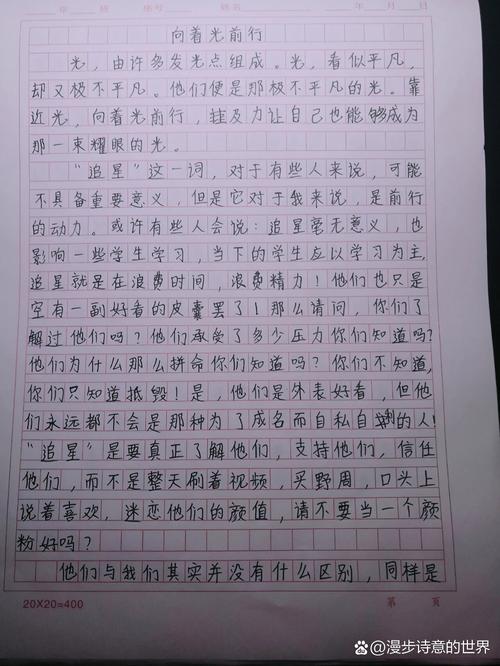 年 班 座号 姓名 年 月 日
向着光前行
光，由许多发光点组成。光，看似平凡，
却又极不平凡。他们便是那极不平凡的光。靠
近光，向着光前行，努力让自己也能够成为
那一束耀眼的光。
"追星"这一词，对于有些人来说，可能
不具备重要意义，但是它对于我来说，是前行
的动力。或许有些人会说：追星毫无意义，也
影响一些学生学习，当下的学生应以学习为主，
追星就是在浪费时间，浪费精力！他们也只是
空有一副好看的皮囊罢了！那么请问，你们了
解过他们吗？他们承受了多少压力你们知道吗？
他们为什么那么拼命你们知道吗？你们不知道，
你们只知道抵毁！是，他们是外表好看，但他
们永远都不会是那种为了成名而自私自利的人！
"追星"是要真正了解他们，支持他们，信任
他们，而不是整天刷着视频，买野周，口头上
说着喜欢，迷恋他们的颜值，请不要当一个颜
粉好吗？
他们与我们其实并没有什么区别，同样是
20X20=400
第 页
@漫步诗意的世界